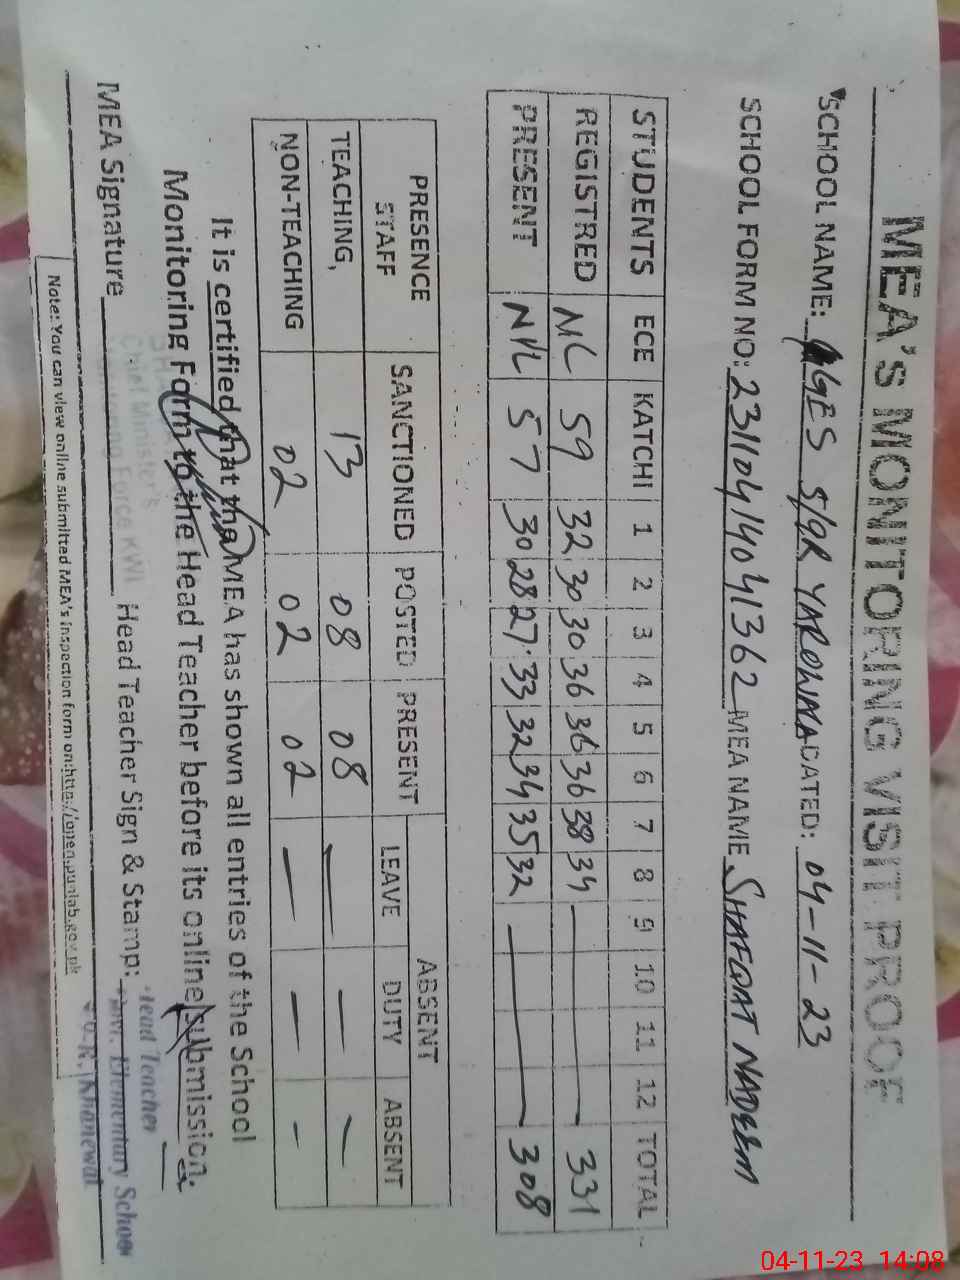 MEA'S MONITORING VISIT PROOF
SCHOOL NAME: GGES 5/9R YAROWMA DATED: 04-11-23
SCHOOL FORM NO: 231104140413 62 MEA NAME SHAFQAT NADEEM
STUDENTS ECE KATCHI 1 2 3 4 5 6 7 8 9 10 11 12 TOTAL
REGISTRED NIL 59 32 30 30 36 36 36 38 34 — 331
PRESENT NIL 57 30 28 27 33 32 34 35 32 — 308
PRESENCE STAFF SANCTIONED POSTED PRESENT ABSENT
LEAVE DUTY ABSENT
TEACHING, 13 08 08 — — —
NON-TEACHING 02 02 02 — — —
It is certified that the MEA has shown all entries of the School
Monitoring Form to the Head Teacher before its online submission.
MEA Signature Head Teacher Sign & Stamp:
Chief Minister's
Monitoring Force KWL
Head Teacher
Govt. Elementary School
Khanewal
Note: You can view online submitted MEA's inspection form on:http://open.punjab.gov.pk
04-11-23 14:08